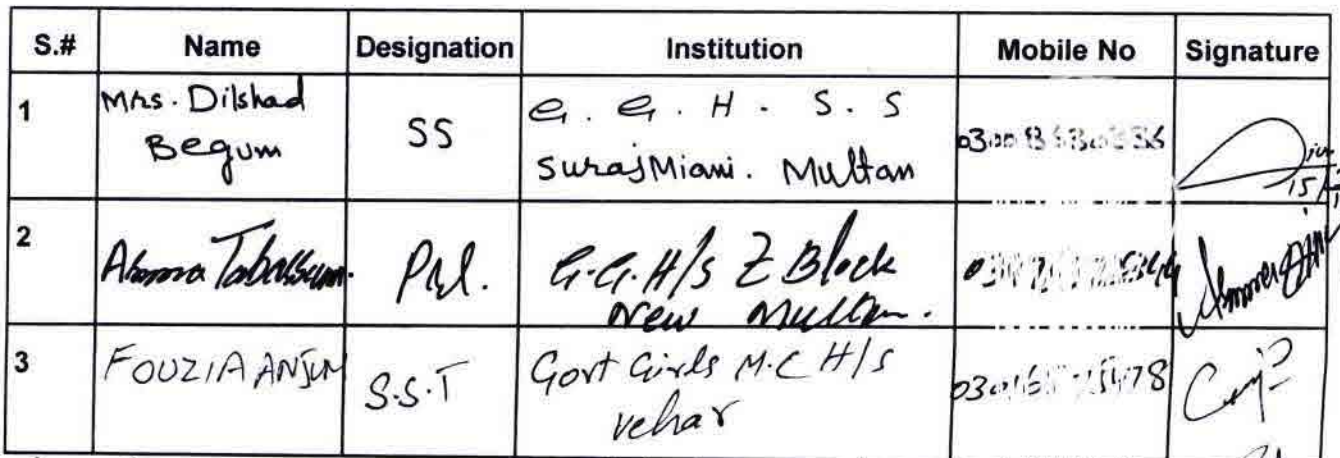 S.# Name Designation Institution Mobile No Signature
1 Mrs. Dilshad Begum SS G. G. H. S. S
Suraj Miani. Multan
2 Tabassum Pnl. G.G.H/S Z Block
New Multan.
3 FOUZIA ANJUM S.S.T Govt Girls M.C H/S
vehar